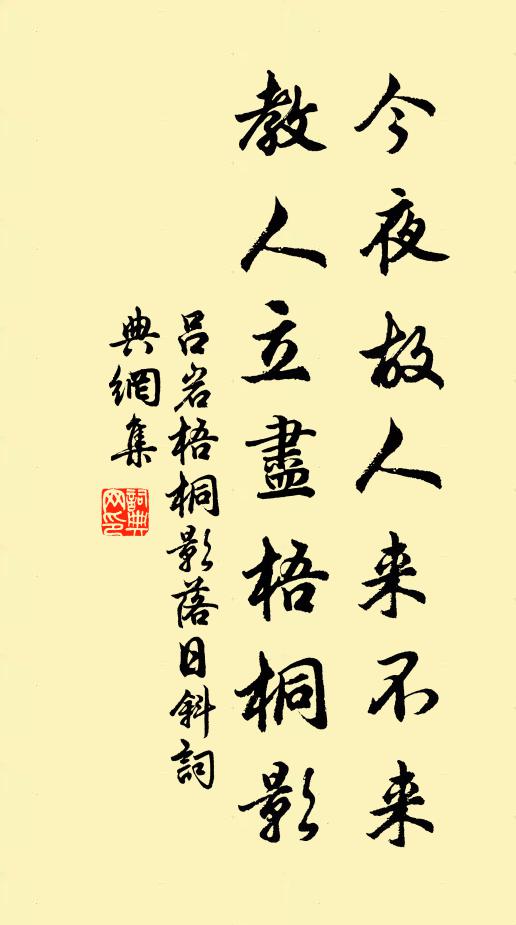 今夜故人来不来
教人立盡梧桐影
呂岩梧桐影落日斜詞
典網集
詞典
网印